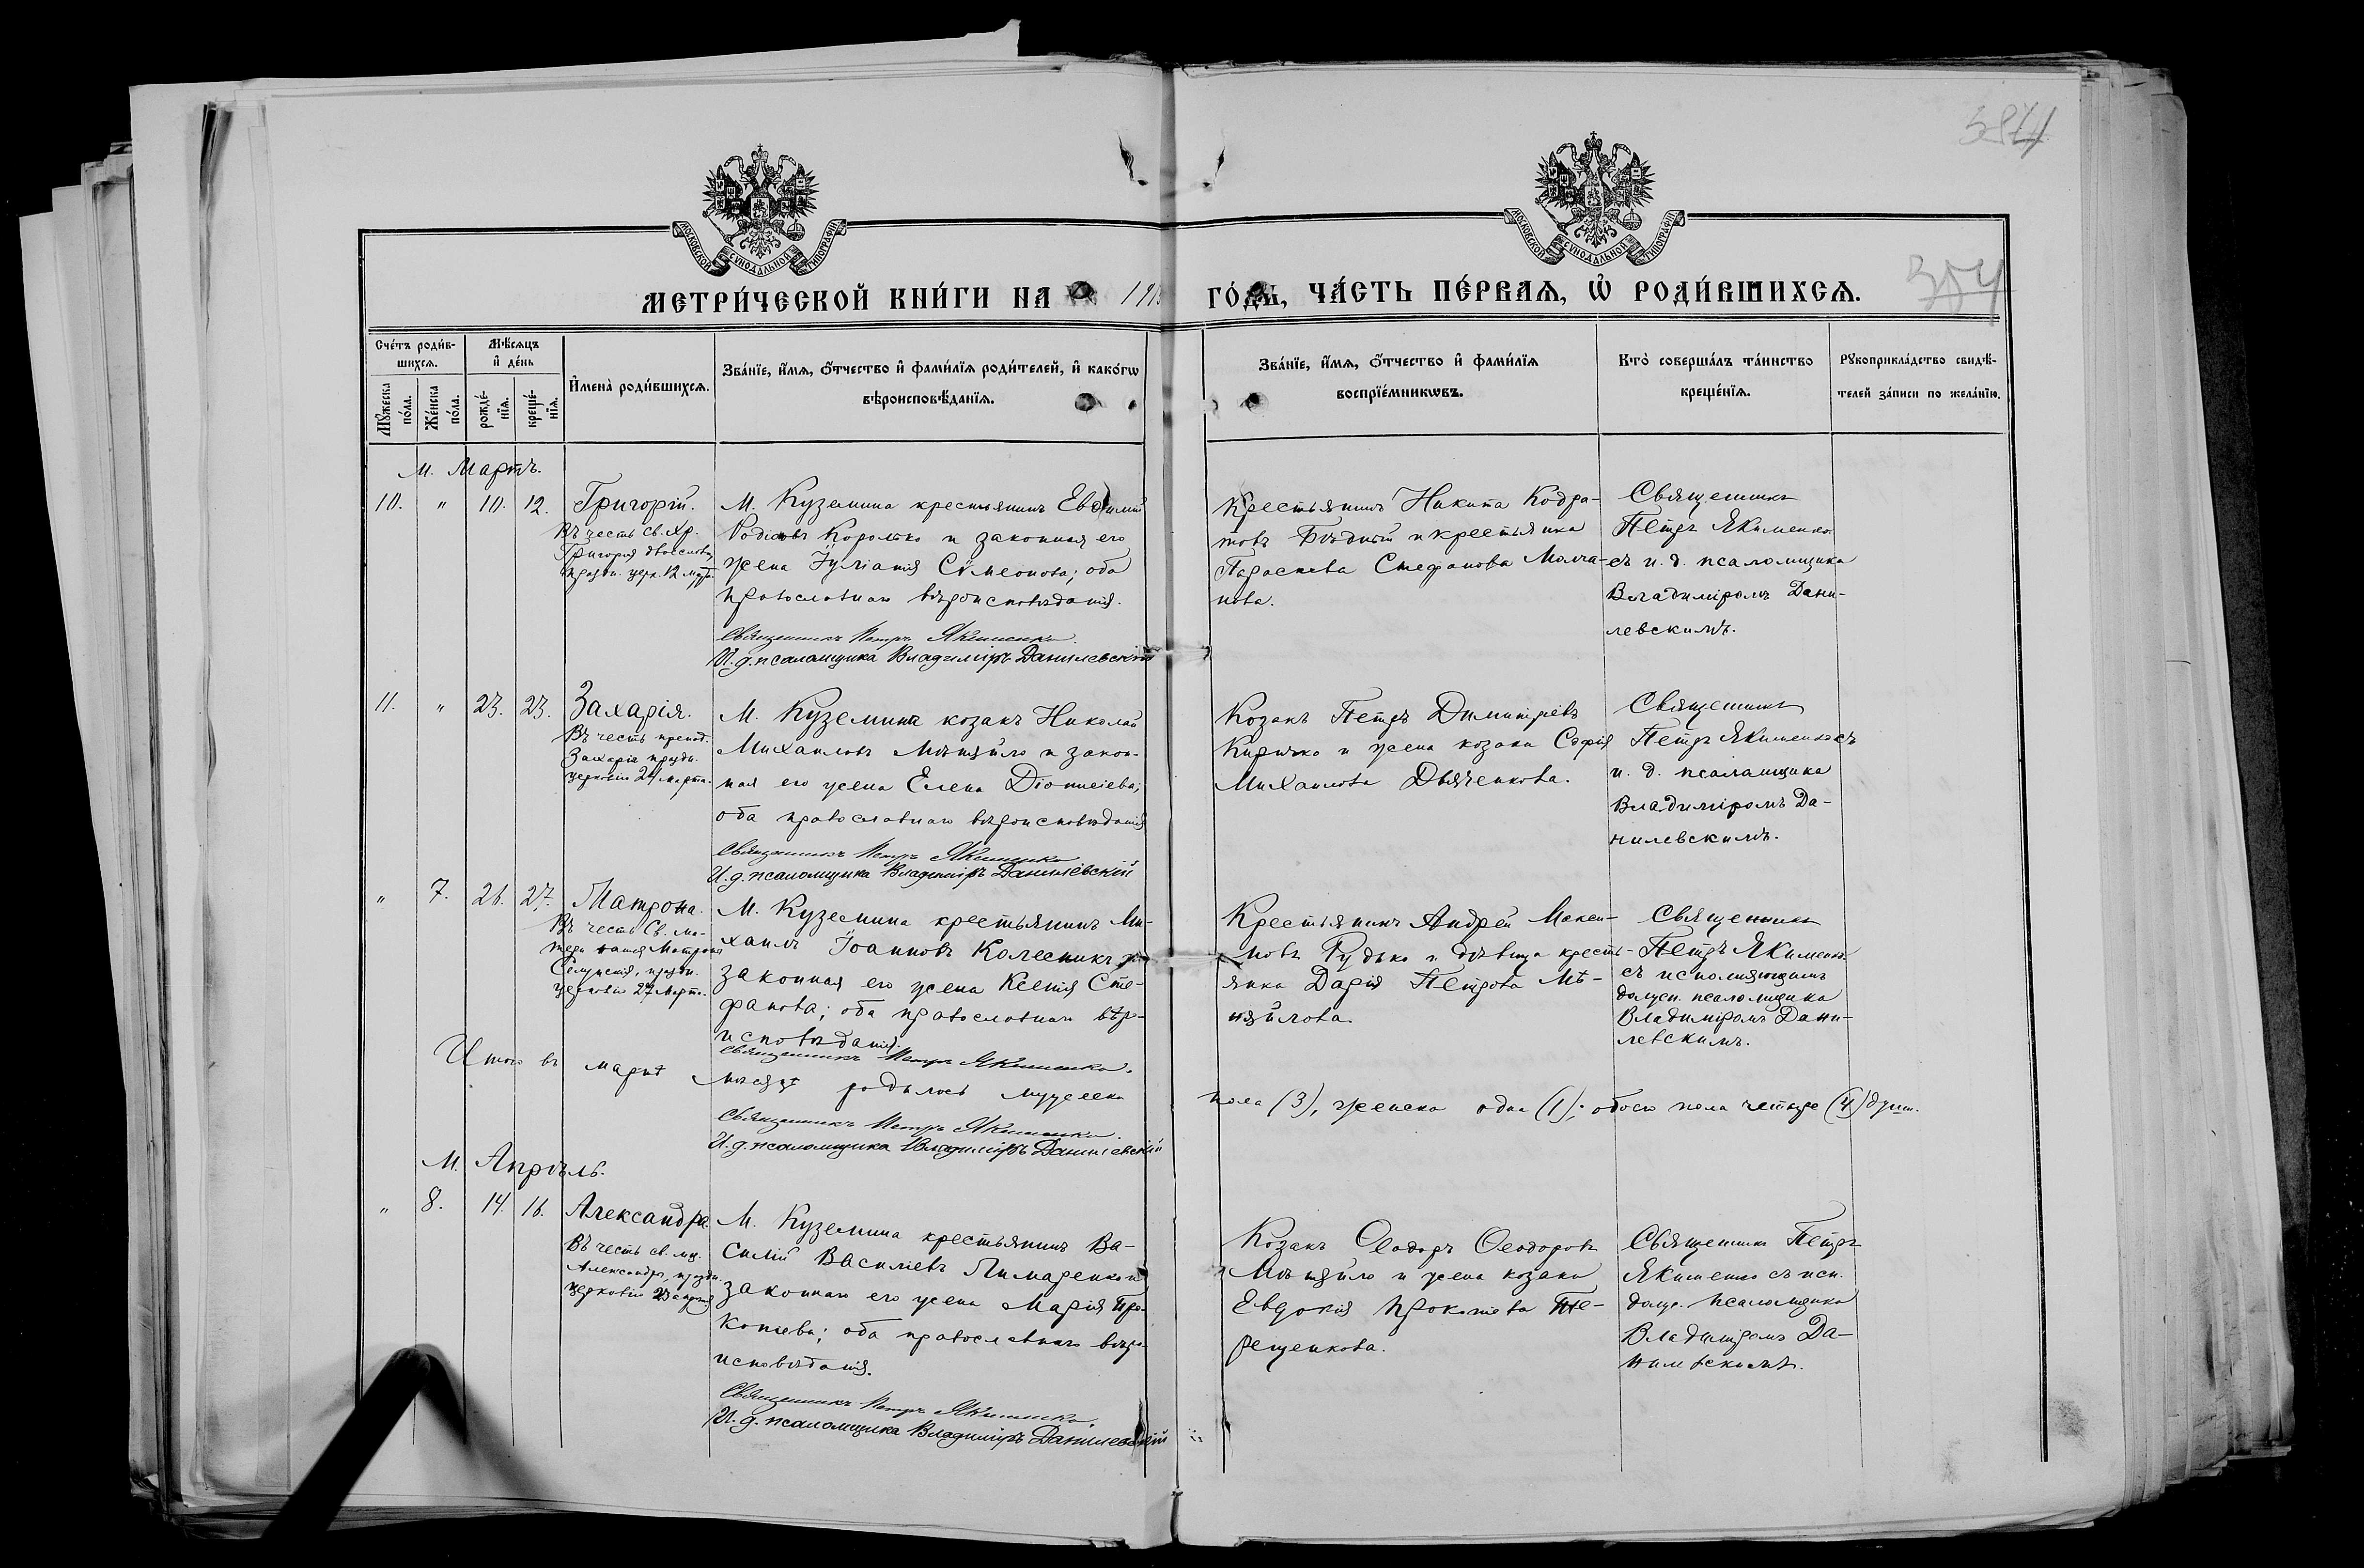 5874
354
МОСКОВСКОЙ СѴНОДАЛЬНОЙ ТИПОГРАФІИ
МОСКОВСКОЙ СѴНОДАЛЬНОЙ ТИПОГРАФІИ
МЕТРИ́ЧЕСКОЙ КНИ́ГИ НА 191
ГО́ДЪ, ЧА́СТЬ ПЕ́РВАѦ, Ѡ҆ РОДИ́ВШИХСѦ.
Сче́тъ роди́в-
шихсѧ.
Мѣ́сѧцъ
и҆ де́нь
Мꙋ́жеска по́ла.
Же́нска по́ла.
рожде́-
нїѧ.
креще́-
нїѧ.
И҆мена̀ роди́вшихсѧ.
Зва́нїе, и҆́мѧ, ѻ҆́тчество и҆ фами́лїѧ роди́телей, и҆ како́гѡ
вѣроисповѣ́данїѧ.
Зва́нїе, и҆́мѧ, ѻ҆́тчество и҆ фами́лїѧ
воспрїе́мникѡвъ.
Кто̀ соверша́лъ та́инство
креще́нїѧ.
Рꙋкоприкла́дство свидѣ́-
телей за́писи по жела́нїю.
М. Мартъ.
10. " 10. 12. Григорій.
Въ честь св. Хр.
Григорія двоеслова,
праздн. церк. 12 март.
М. Куземина крестьянинъ Евфимій
Родіоновъ Коротко и законная его
жена Іуліанія Сѵмеонова; оба
православнаго вѣроисповѣданія.
Священникъ Петръ Якименко.
И. д. псаломщика Владиміръ Данилевскій
Крестьянинъ Никита Кодра-
товъ Бѣдный и крестьянка
Параскева Стефанова Молча-
нова.
Священникъ
Петръ Якименко
съ и. д. псаломщика
Владиміромъ Дани-
левскимъ.
11. " 23. 23. Захарія.
Въ честь препод.
Захаріи праздн.
церковію 24 марта.
М. Куземина козакъ Николай
Михаиловъ Мѣняйло и закон-
ная его жена Елена Діонисіева;
оба православнаго вѣроисповѣданія
Священникъ Петръ Якименко
И. д. псаломщика Владиміръ Данилевскій
Козакъ Петръ Димитріевъ
Киричко и жена козака Софія
Михаилова Дьяченкова.
Священникъ
Петръ Якименко съ
и. д. псаломщика
Владиміромъ Да-
нилевскимъ.
" 7. 26. 27. Матрона.
Въ честь Св. му-
Матроны
Селунскія, праздн.
церковію 27 Марта.
М. Куземина крестьянинъ Ми-
хаилъ Іоанновъ Колесникъ и
законная его жена Ксенія Сте-
фанова; оба православнаго вѣро-
исповѣданія.
Священникъ Петръ Якименко.
Крестьянинъ Андрей Макси-
мовъ Рудько и дѣвица кресть-
янка Дарія Петрова Мѣ-
няйлова.
Священникъ
Петръ Якименко
съ исполняющимъ
должн. псаломщика
Владиміромъ Дани-
левскимъ.
Итого въ мартѣ мѣсяцѣ родилось мужеска
пола (3), женска одна (1); обоего пола четыре (4) душ.
Священникъ Петръ Якименко.
И. д. псаломщика Владиміръ Данилевскій
М. Апрѣль.
" 8. 14. 16. Александра.
Въ честь св. мц.
Александры, праздн.
церковію 23 апрѣля
М. Куземина крестьянинъ Ва-
силій Василіевъ Пимаренко и
законная его жена Марія Про-
копіева; оба православнаго вѣро-
исповѣданія.
Священникъ Петръ Якименко.
И. д. псаломщика Владиміръ Данилевскій
Козакъ Ѳеодоръ Ѳеодоровъ
Мѣняйло и жена козака
Евдокія Прокопіева Те-
рещенкова.
Священникъ Петръ
Якименко съ исп.
долж. псаломщика
Владиміромъ Да-
нилевскимъ.